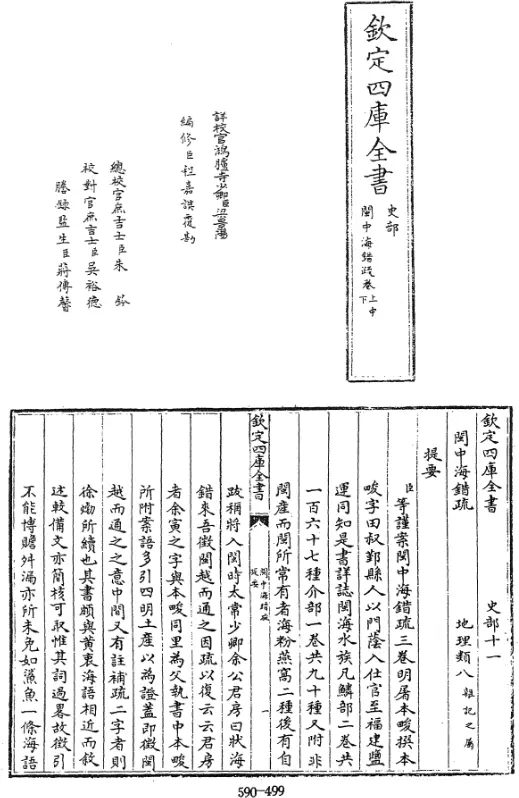 欽定四庫全書
史部
閩中海錯疏卷上中下
詳校官鴻臚寺少卿臣
編修臣程嘉謨覆勘
總校官庶吉士臣朱鈐
校對官庶吉士臣吳裕德
謄錄監生臣蔣傅馨
欽定四庫全書 史部十一
閩中海錯疏 地理類八雜記之屬
提要
臣等謹案閩中海錯疏三卷明屠本畯撰本
畯字田叔鄞縣人以門蔭入仕官至福建鹽
運同知是書詳誌閩海水族凡鱗部二卷共
一百六十七種介部一卷共九十種又附非
閩產而閩所常有者海粉燕窩二種後有自
欽定四庫全書 閩中海錯疏 提要 一
跋稱將入閩時太常少卿余公君房曰狀海
錯來吾徵閩越而通之因疏以復云云君房
者余寅之字與本畯同里為父執書中本畯
所附案語多引四明土產以為證蓋即徵閩
越而通之之意中間又有註補疏二字者則
徐𤊹所續也其書頗與黃衷海語相近而敘
述較備文亦簡核可取惟其詞過畧故徵引
不能博贍舛漏亦所未免如鯊魚一條海語
590-499